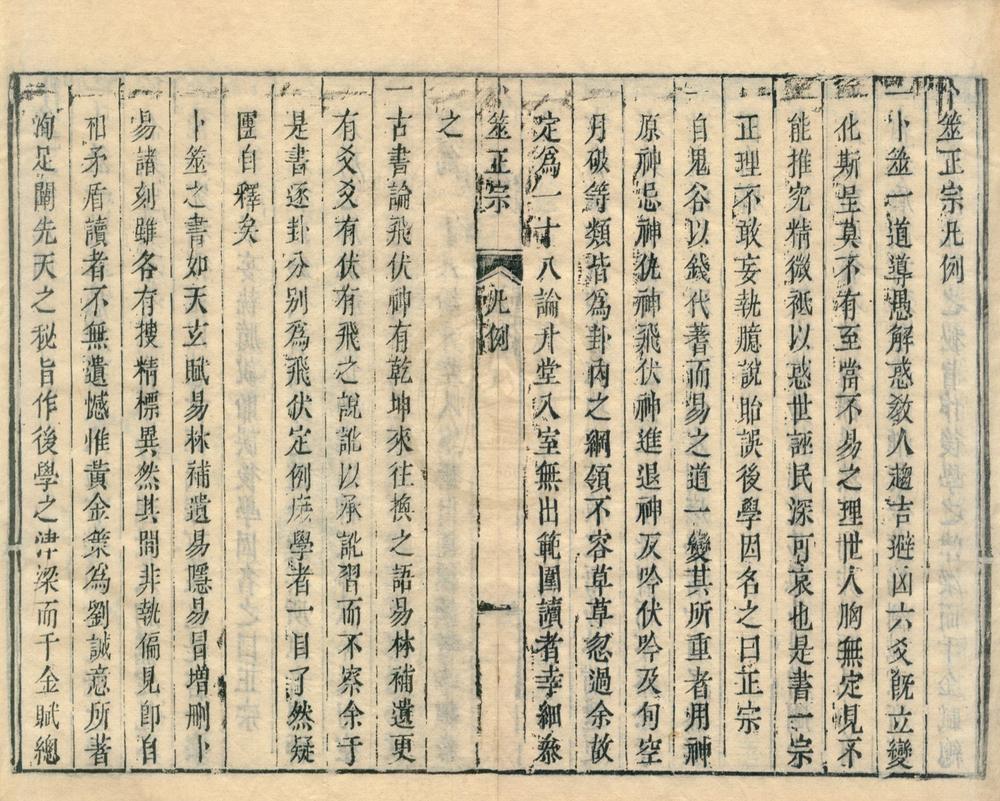 卜筮正宗凡例
一卜筮一道導愚解惑敎人趨吉避凶六爻旣立變
化斯呈莫不有至當不易之理世人胸無定見不
能推究精微祗以惑世誣民深可哀也是書一宗
正理不敢妄執臆說貽誤後學因名之曰正宗
一自鬼谷以錢代蓍而易之道一變其所重者用神
原神忌神仇神飛伏神進退神反吟伏吟及旬空
月破等類皆爲卦內之綱領不容草草忽過余故
定爲一十八論升堂入室無出範圍讀者幸細叅
筮正宗 凡例
之
一古書論飛伏神有乾坤來往換之語易林補遺更
有爻爻有伏有飛之說訛以承訛習而不察余于
是書逐卦分別爲飛伏定例庶學者一目了然疑
團自釋矣
一卜筮之書如天玄賦易林補遺易隱易冒增刪卜
易諸刻雖各有搜精標異然其間非執偏見卽自
相矛盾讀者不無遺憾惟黃金策爲劉誠意所著
洵足闡先天之秘旨作後學之津梁而千金賦總